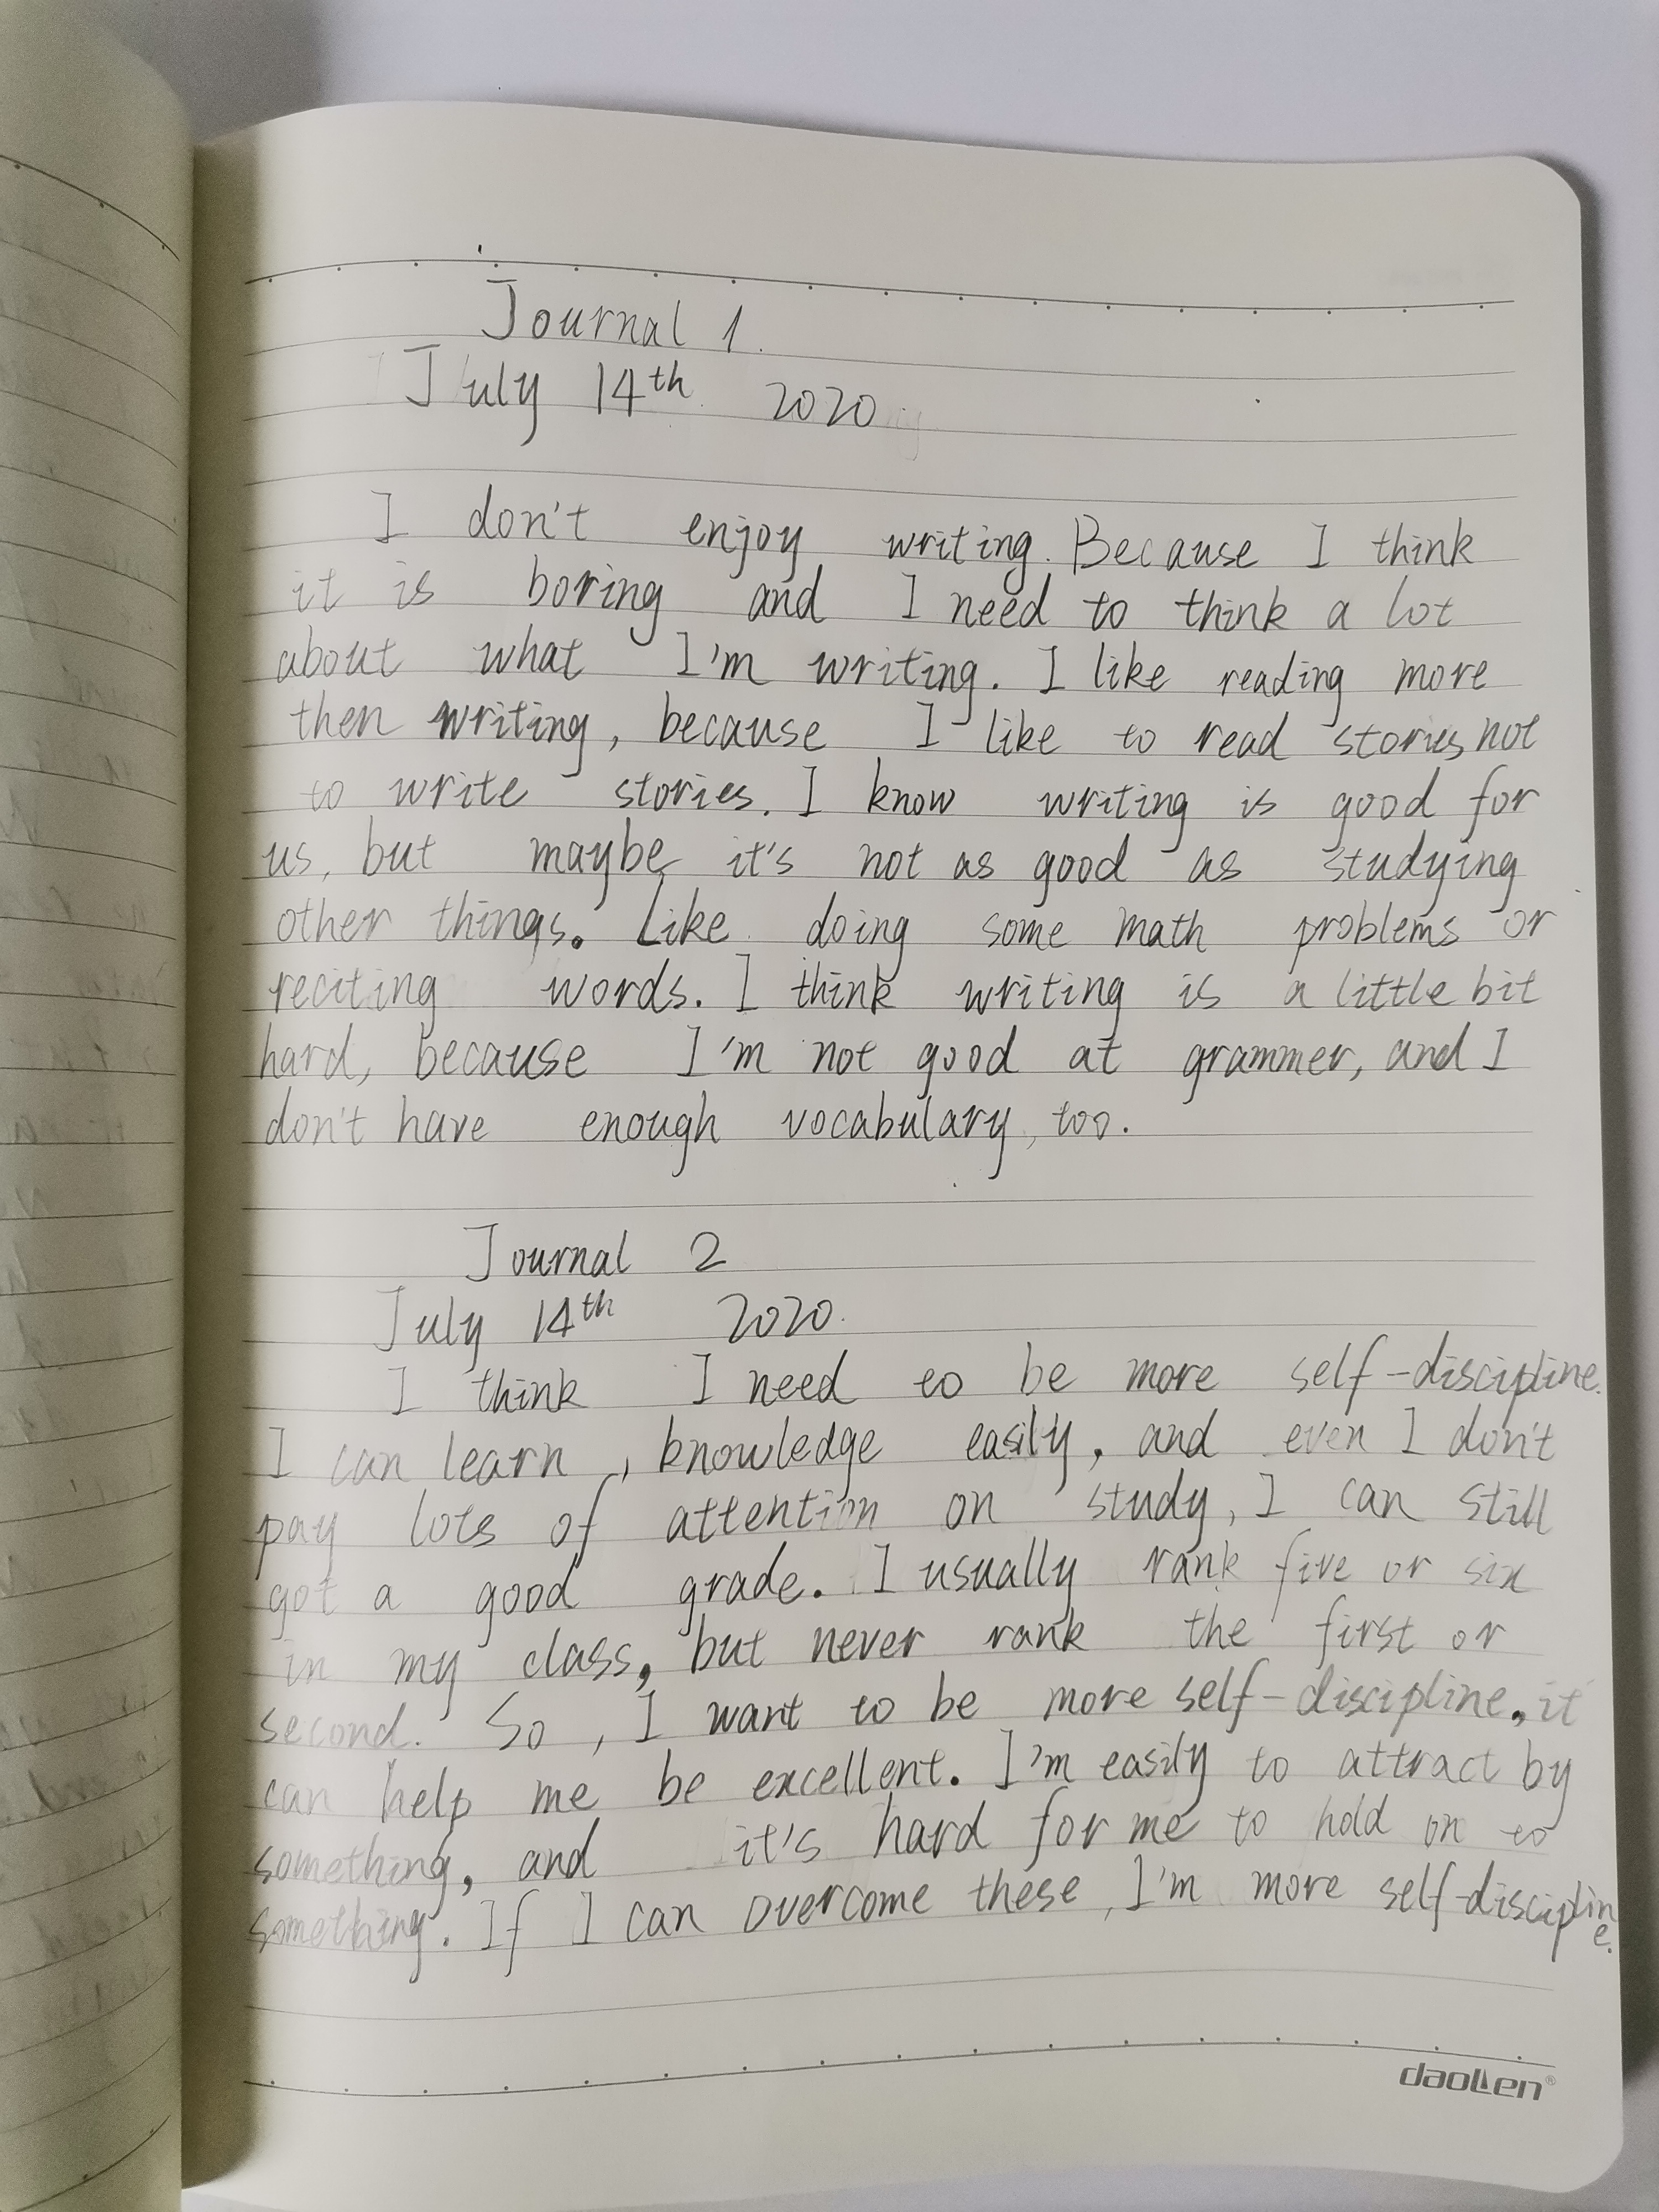 Journal 1.
July 14th 2020
I don't enjoy writing. Because I think
it is boring and I need to think a lot
about what I'm writing. I like reading more
then writing, because I like to read stories not
to write stories. I know writing is good for
us, but maybe it's not as good as studying
other things. Like doing some math problems or
reciting words. I think writing is a little bit
hard, because I'm not good at grammer, and I
don't have enough vocabulary, too.
Journal 2
July 14th 2020.
I think I need to be more self-discipline.
I can learn, knowledge easily, and even I don't
pay lots of attention on study, I can still
got a good grade. I usually rank five or six
in my class, but never rank the first or
second. So, I want to be more self-discipline, it
can help me be excellent. I'm easily to attract by
something, and it's hard for me to hold on to
something. If I can overcome these, I'm more self-discipline.
daolen®